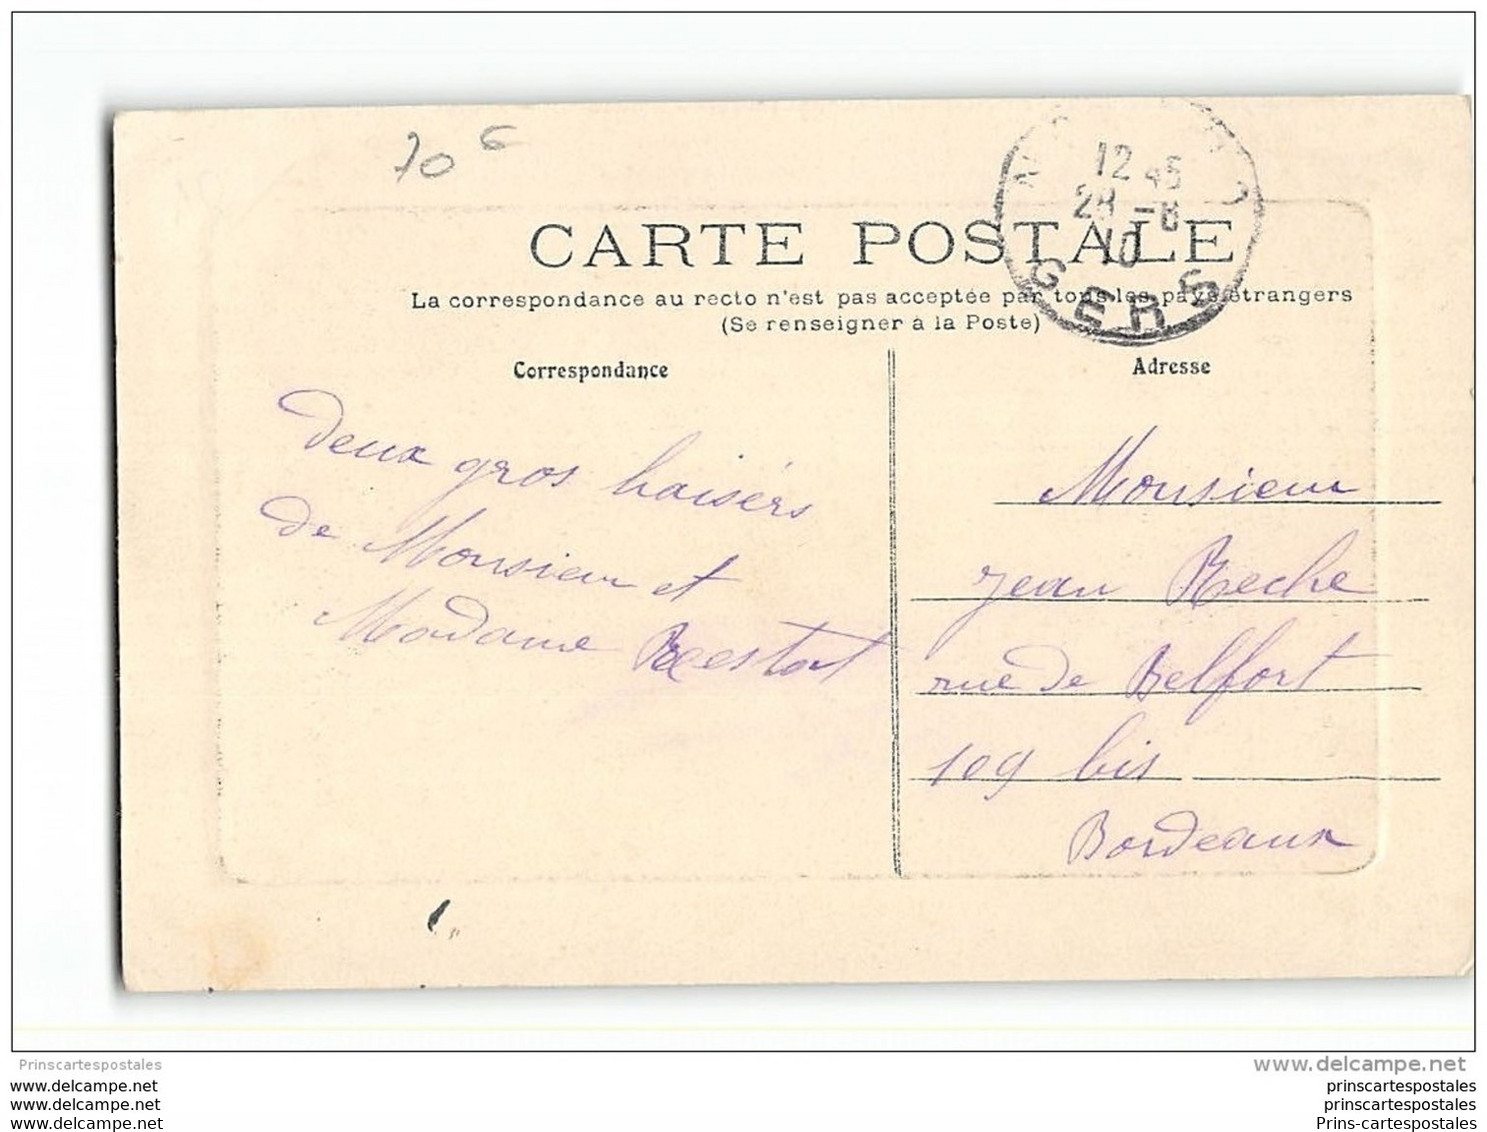 70 €
12 45
28 - 8
10
GERS
CARTE POSTALE
La correspondance au recto n'est pas acceptée par tous les pays étrangers
(Se renseigner à la Poste)
Correspondance
Adresse
deux gros baisérs
de Monsieur et
Madame
Monsieur
jean Reche
rue de Belfort
109 bis
Bordeaux
Prinscartespostales
www.delcampe.net
www.delcampe.net
prinscartespostales
www.delcampe.net
prinscartespostales
www.delcampe.net
Prins-cartespostales